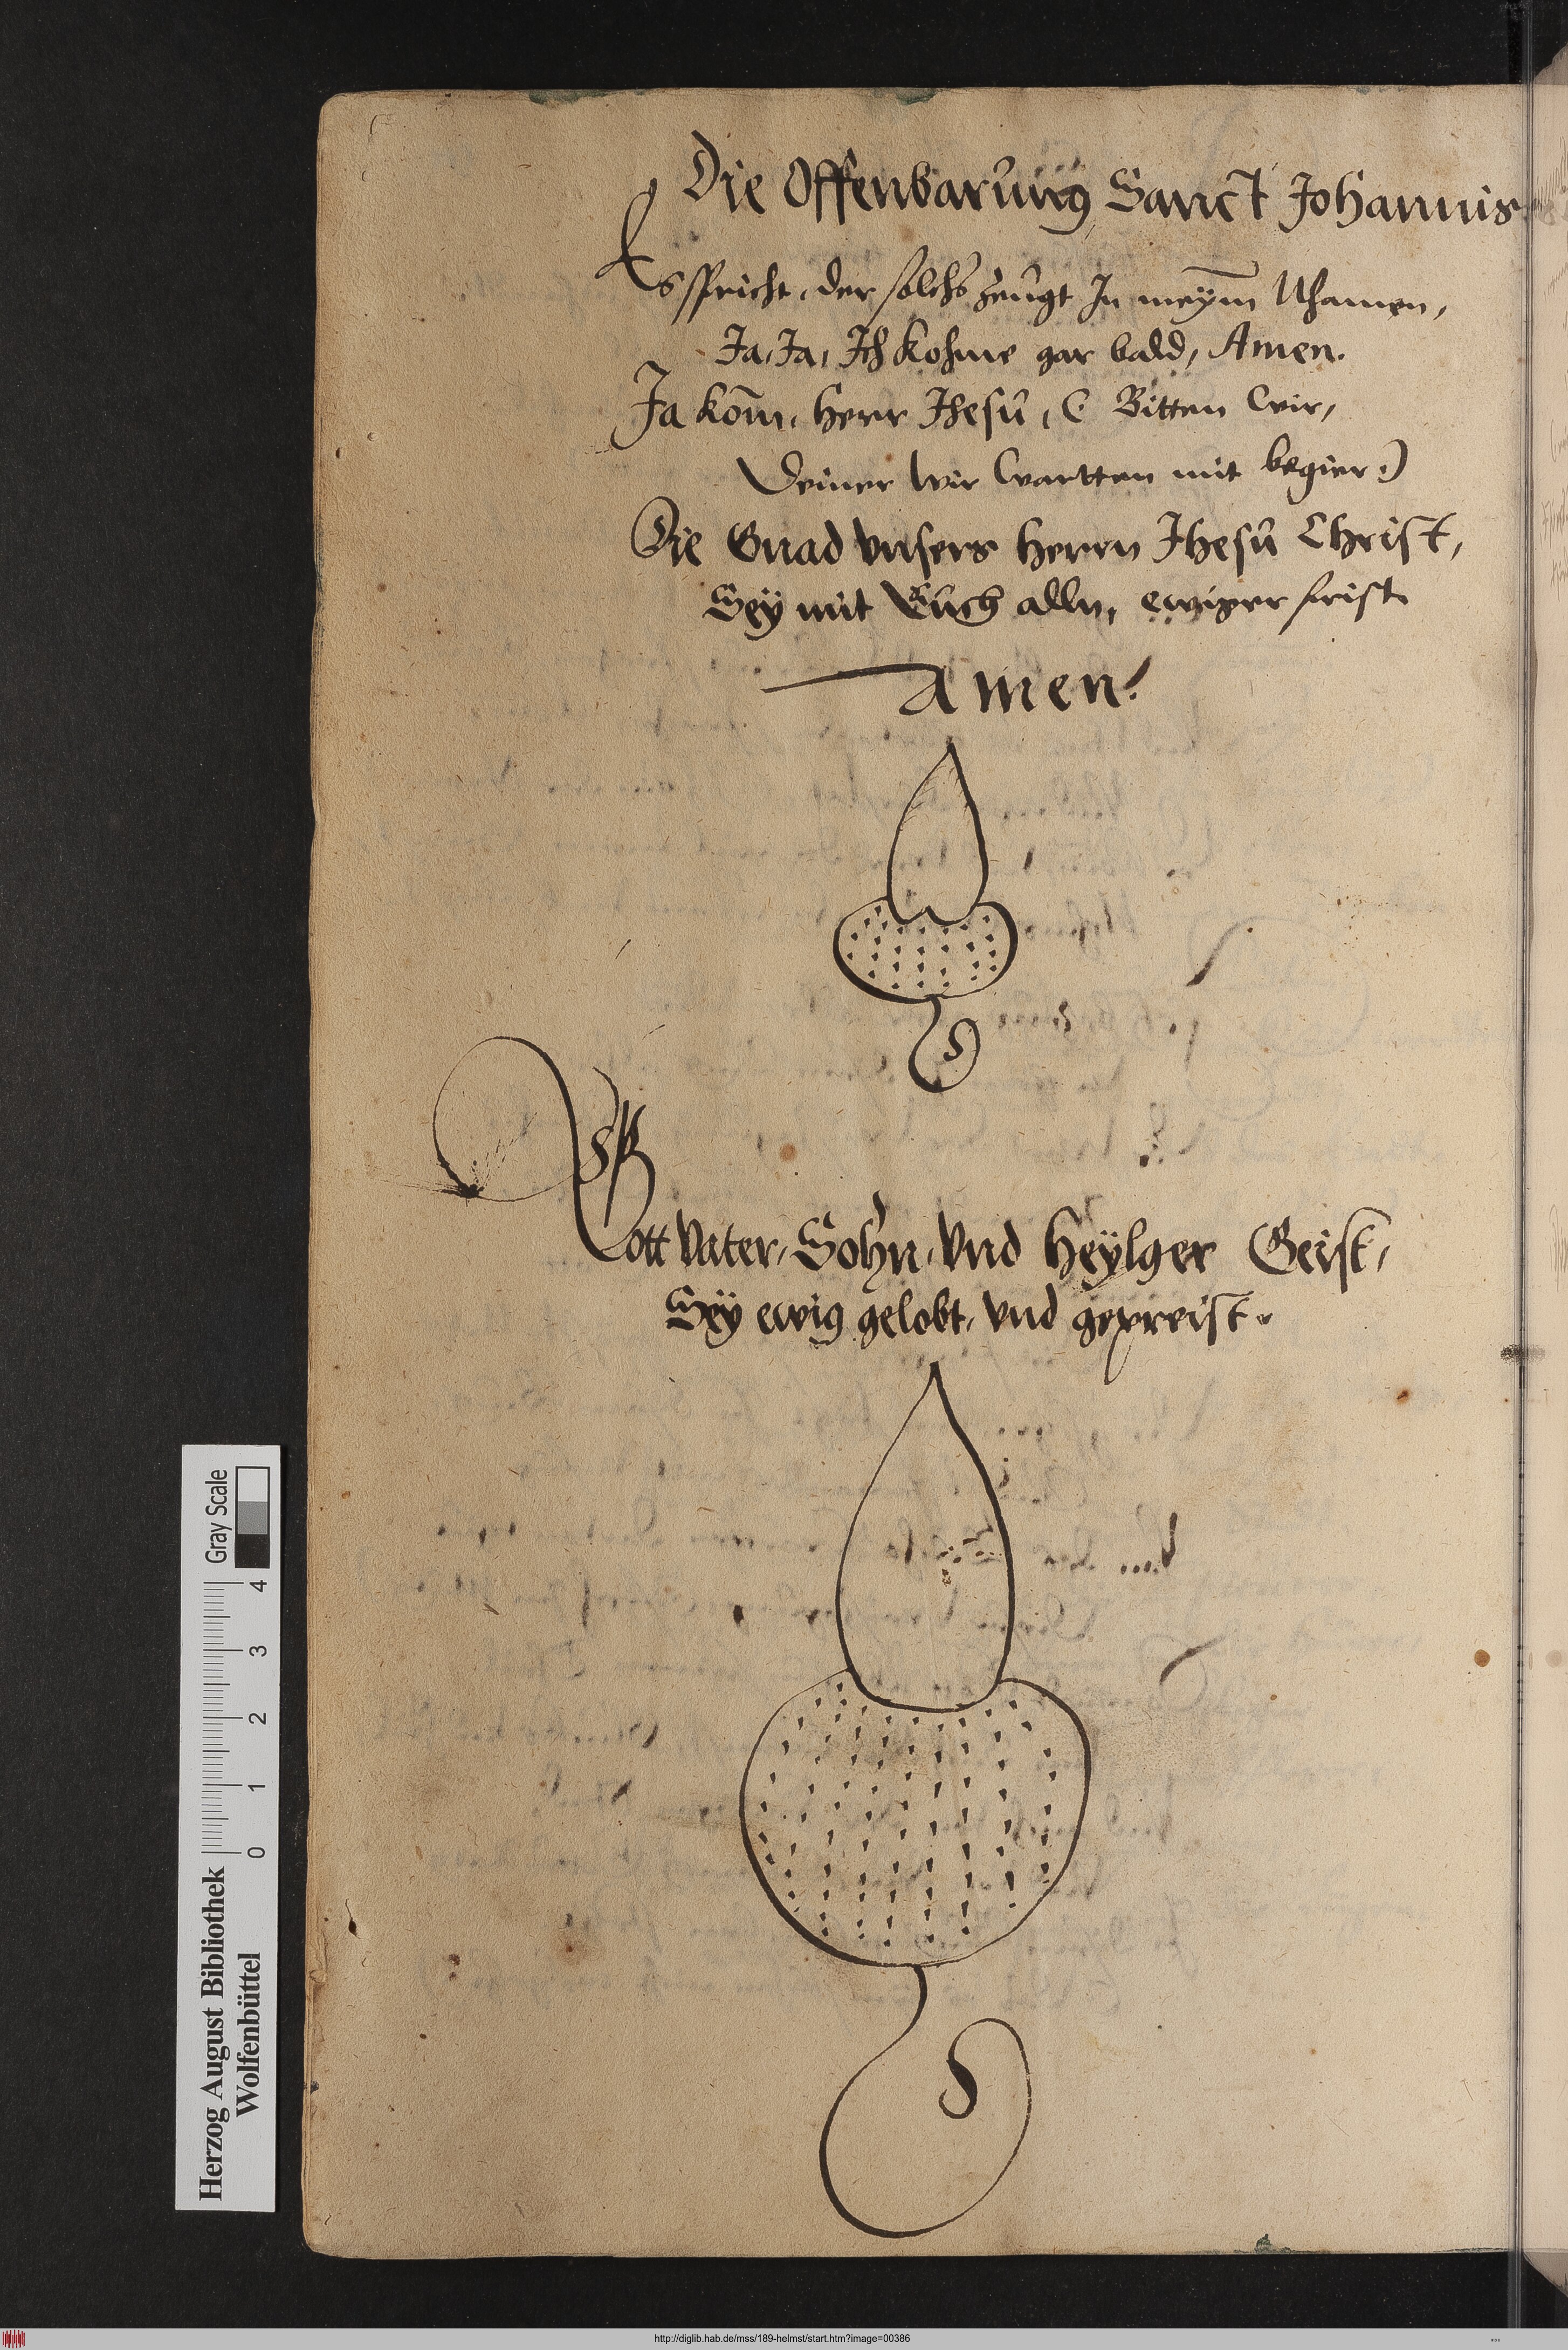 Die Offenbarung Sanct Johannis
Es spricht, der solchs zeugt In meym̄ Nhamen,
Ja, Ja, Ich kohme gar bald, Amen.
Ja kom̄, herr Jhesu, (: Bitten wir,
Deiner wir wartten mit begier:)
Die Gnad vnsers herrn Jhesu Christ,
Sey mit Euch alln, ewiger frist.
Amen.
Gott Vater, Sohn, vnd heylger Geist,
Sey ewig gelobt, vnd gepreist.
Herzog August Bibliothek
Wolfenbüttel
0 1 2 3 4
Gray Scale
http://diglib.hab.de/mss/189-helmst/start.htm?image=00386